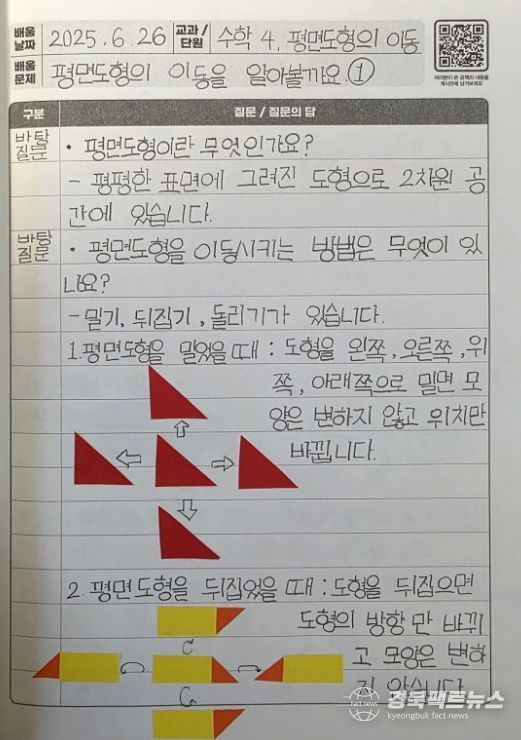 배움 날짜 2025. 6. 26 교과/단원 수학 4. 평면도형의 이동
배움 문제 평면도형의 이동을 알아볼까요 ①
여러분이 쓴 공책의 내용을
게시판에 남겨보세요
구분 질문 / 질문의 답
바탕 질문 • 평면도형이란 무엇인가요?
- 평평한 표면에 그려진 도형으로 2차원 공
간에 있습니다.
바탕 질문 • 평면도형을 이동시키는 방법은 무엇이 있
나요?
- 밀기, 뒤집기, 돌리기가 있습니다.
1. 평면도형을 밀었을 때 : 도형을 왼쪽, 오른쪽, 위
쪽, 아래쪽으로 밀면 모
양은 변하지 않고 위치만
바뀝니다.
2. 평면도형을 뒤집었을 때 : 도형을 뒤집으면
도형의 방향만 바뀌
고 모양은 변하
지 않습니다
경북팩트뉴스
Fact news
kyeongbuk fact news